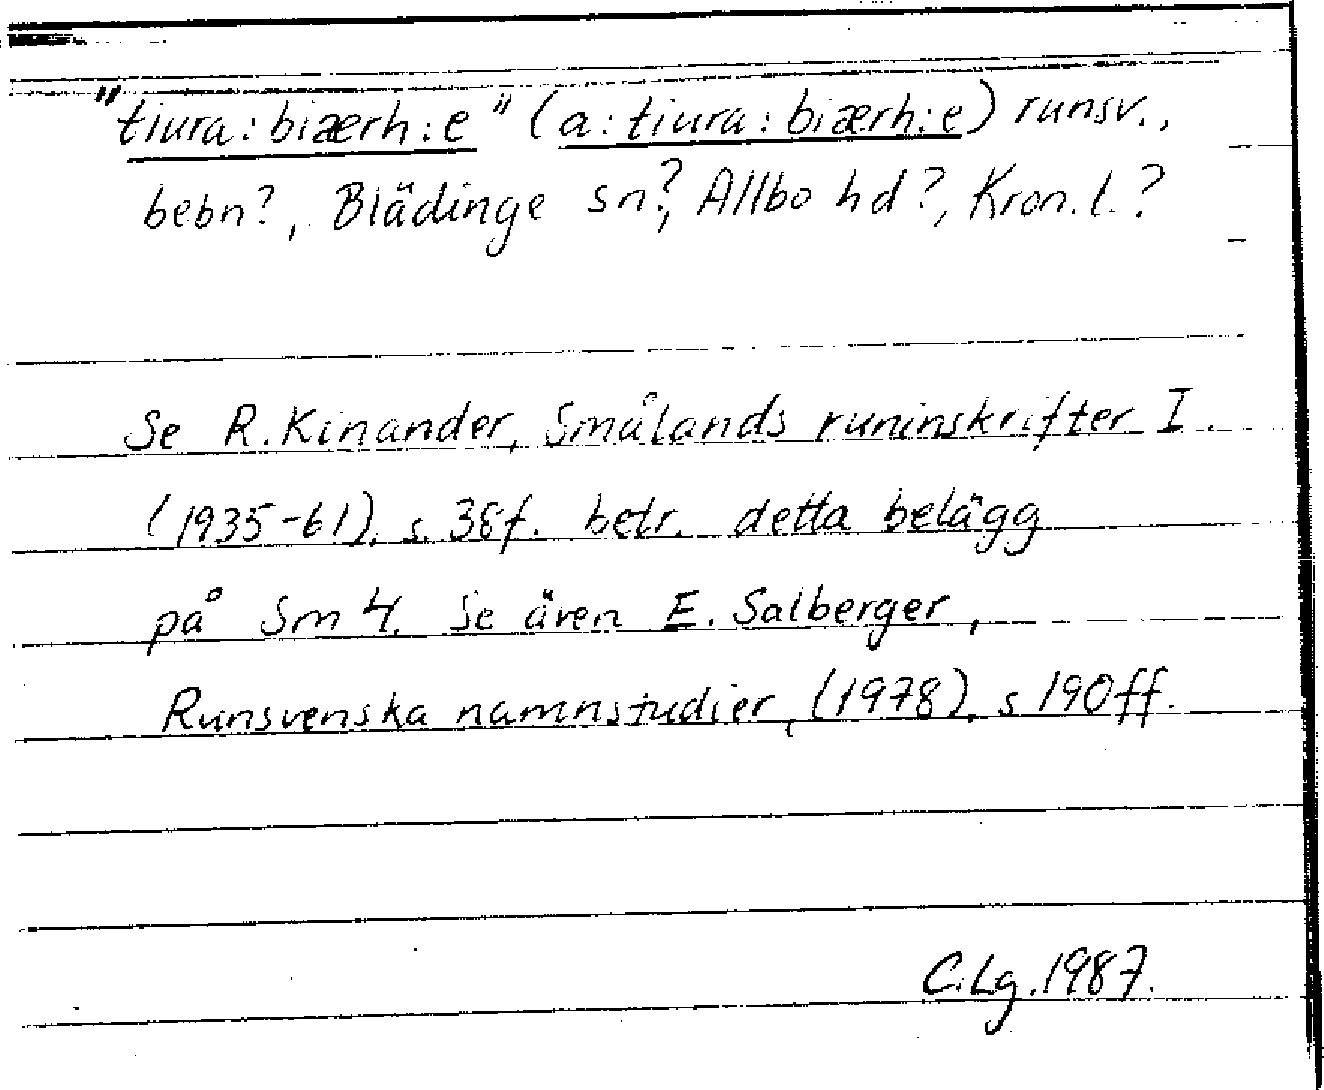 "tiura:biærh:e" (a:tiura:biærh:e) runsv.,
bebn?, Blädinge sn?, Allbo hd?, Kron.l.?
Se R. Kinander, Smålands runinskrifter I.
(1935-61), s. 38f. betr. detta belägg
på Sm 4. Se även E. Salberger,
Runsvenska namnstudier, (1978), s 190ff.
C.Lg.1987.